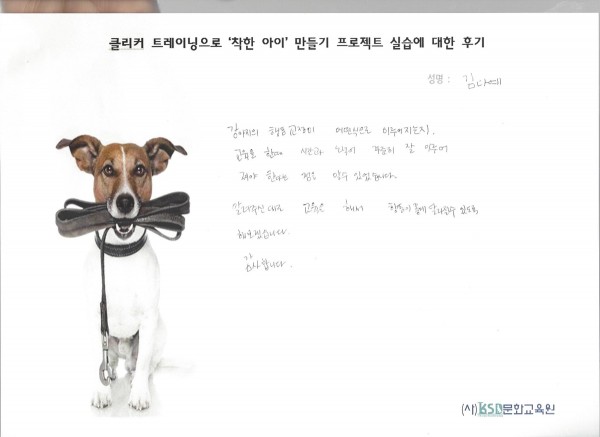 클리커 트레이닝으로 '착한 아이' 만들기 프로젝트 실습에 대한 후기
성명 : 김나예
강아지의 행동교정이 어떤식으로 이루어지는지,
교육을 할때 시간과 노력이 꾸준히 잘 이루어
져야 한다는 것을 알 수 있었습니다.
알려주신대로 교육을 해서
해보겠습니다.
감사합니다.
(사)KSD문화교육원